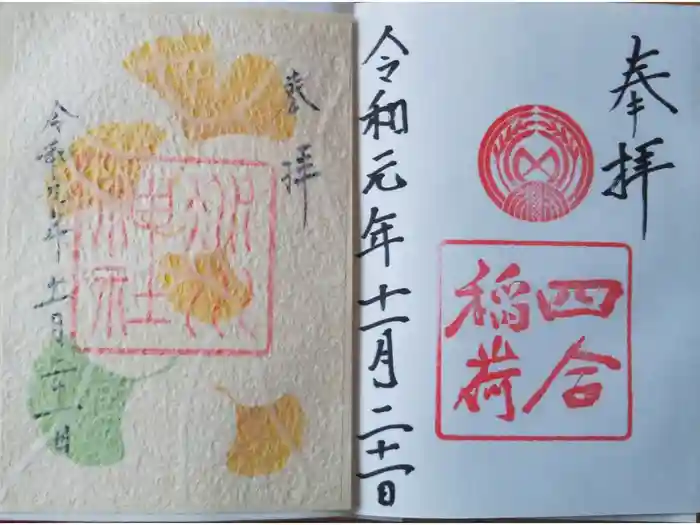 奉拝
四合
稲荷
令和元年十一月二十一日
奉拝
令和元年十一月二十一日